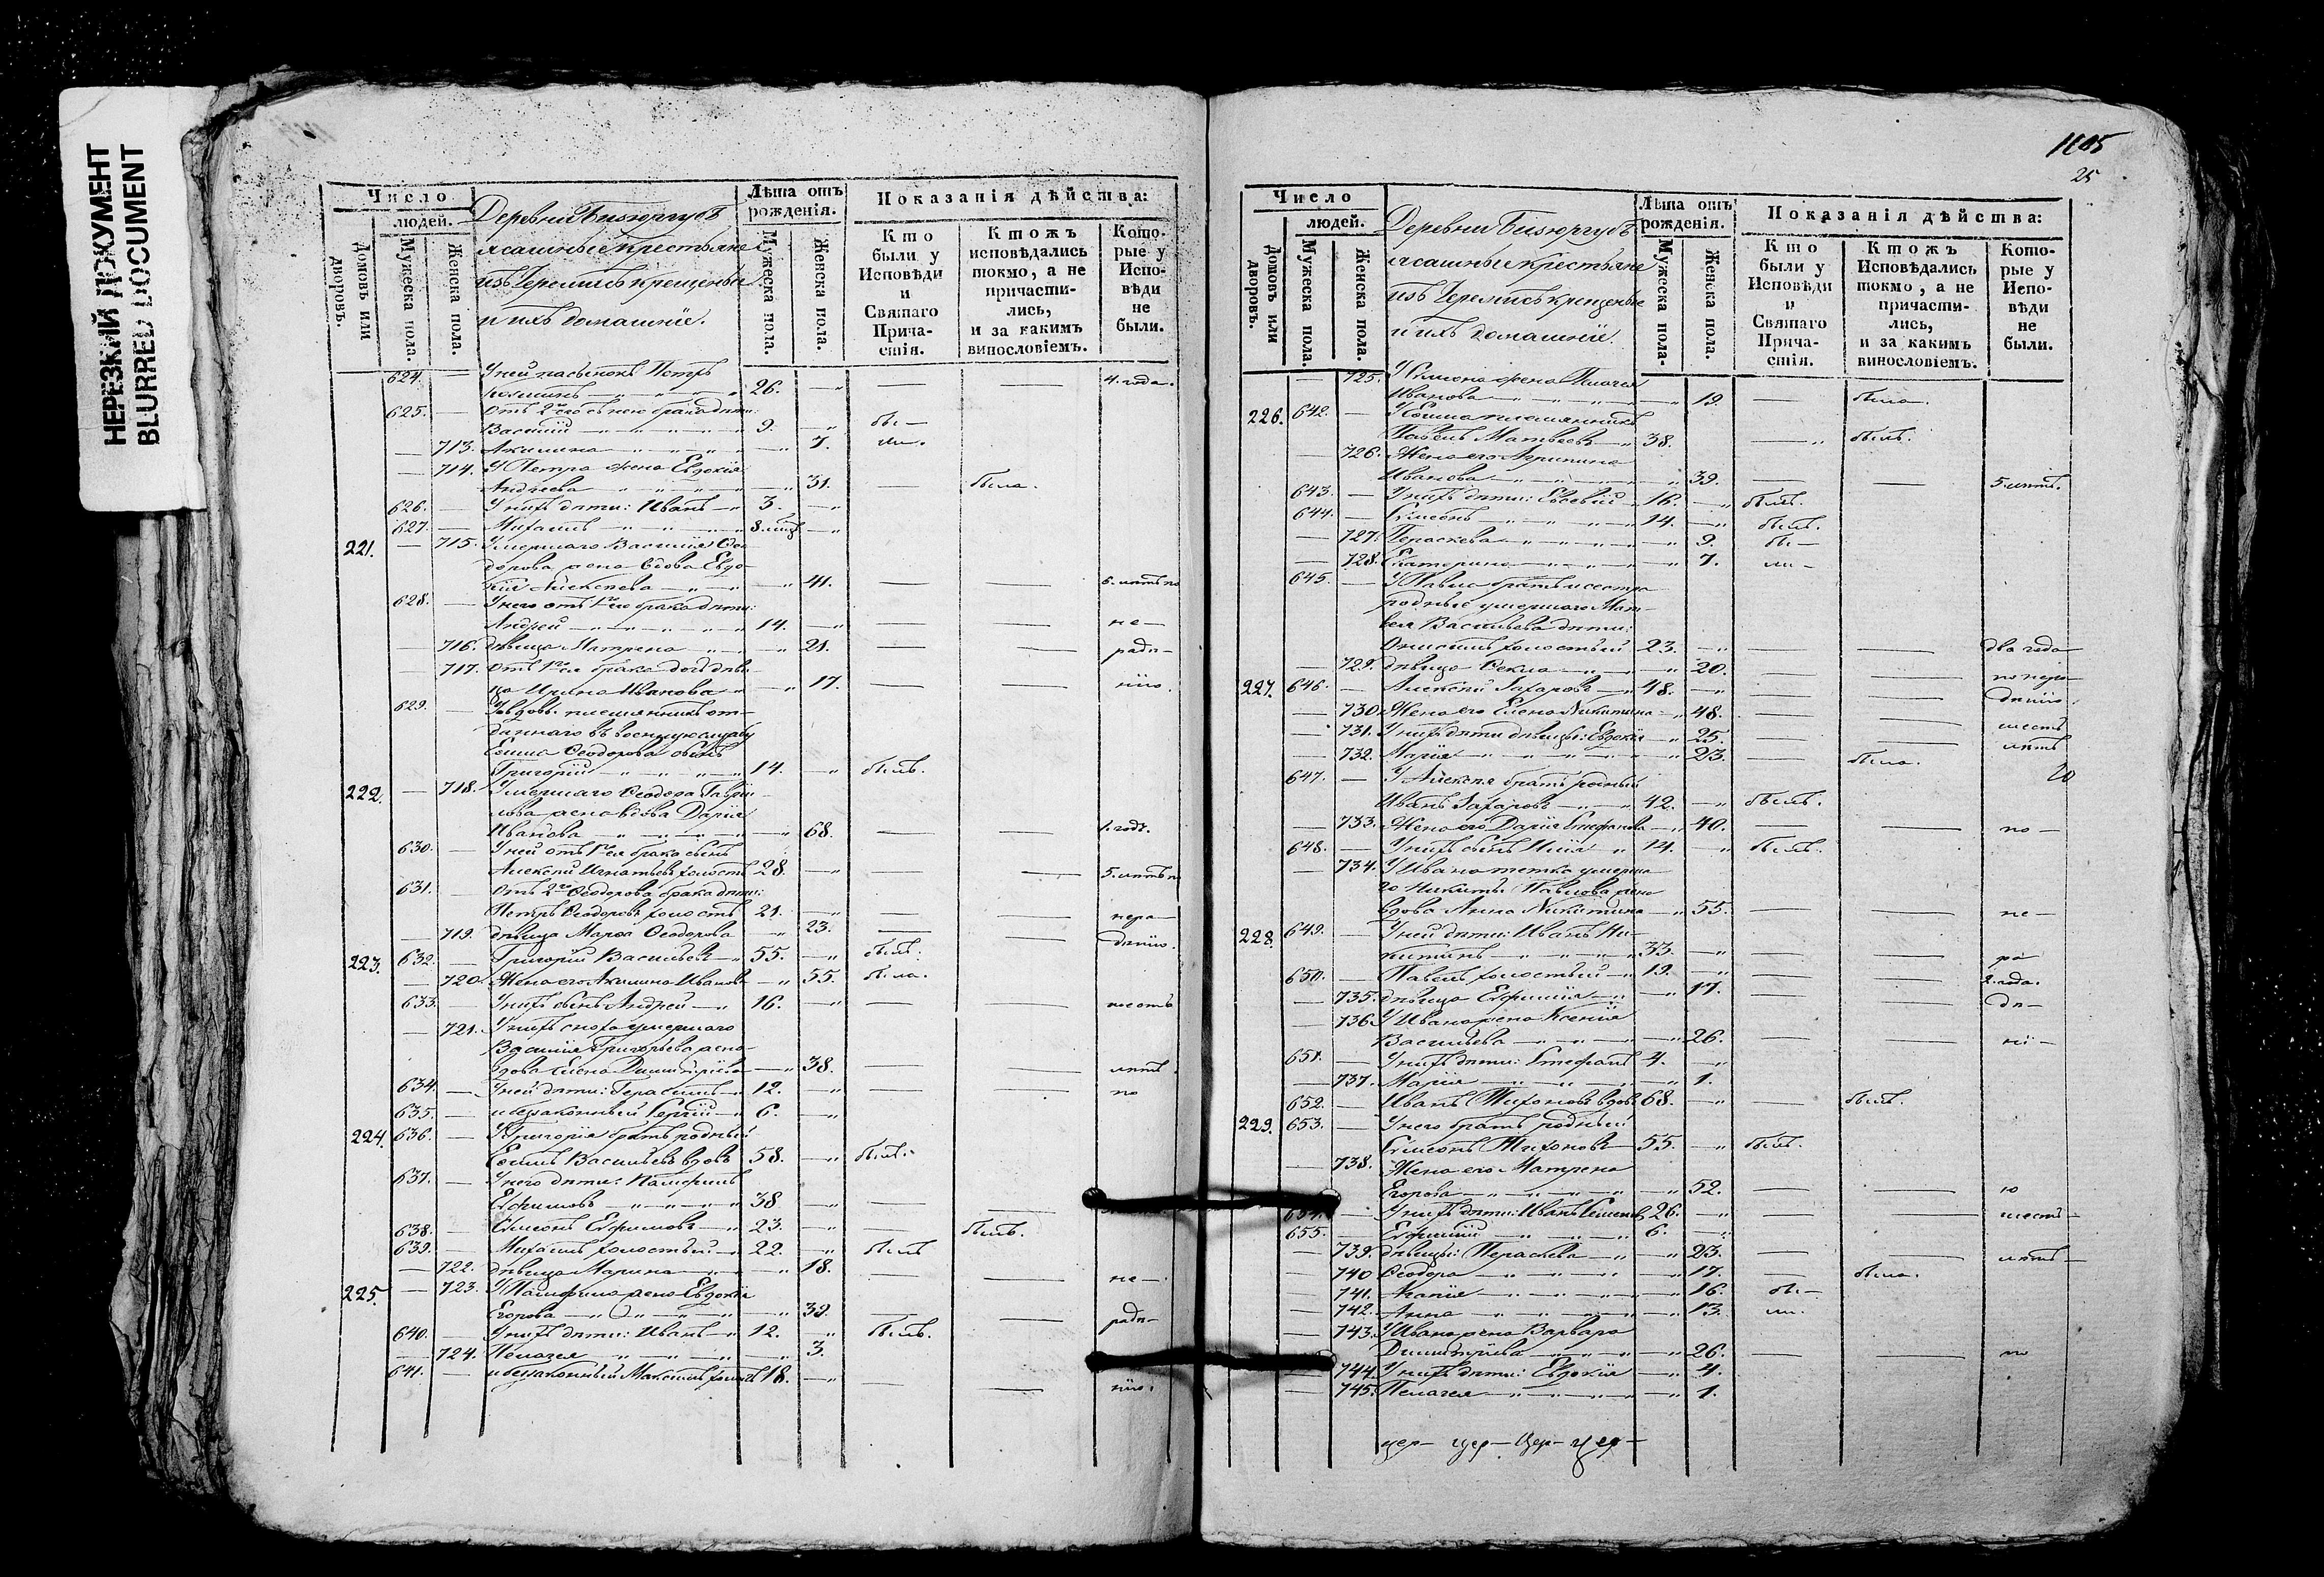 НЕРЕЗКИЙ ДОКУМЕНТ
BLURRED DOCUMENT
Число
людей.
Домовъ или дворовъ.
Мужеска пола.
Женска пола.
Деревни
ясашные крестьяне
изъ Черемисъ крещены
и ихъ домашніе.
Лѣта отъ рожденія.
Мужеска пола.
Женска пола.
Показанія дѣйства:
Кто были у Исповѣди и Святаго Прича-стія.
Ктожъ исповѣдались токмо, а не причасти-лись, и за какимъ винословіемъ.
Кото-рые у Испо-вѣди не были.
624. — У ней пасынокъ Петръ
26. — — 4. года.
625. — Отъ 2го съ нею брака дѣти:
Василій 9. бы—
— 713. Акилина 7. ли.
— 714. У Петра жена Евдокія
Андреева 31. — была.
626. — У нихъ дѣти: Иванъ 3.
627. — Михаилъ 8. мѣц
221. — 715. Умершаго Василія Ѳео-
дорова жена вдова Евдо-
кія Алексѣева 41. — — 6. лѣтъ по
628. — У него отъ 1го брака дѣти:
Андрей 14. — — не—
— 716. дѣвица Матрена 21. — — радѣ—
— 717. Отъ 1го брака дочь дѣви-
ца Ирина Иванова 17. — — нію.
629. — У вдовы племянникъ от-
даннаго въ военную службу
Еѳима Ѳеодорова сынъ
Григорій 14. былъ.
222. — 718. Умершаго Ѳеодора Гаври-
лова жена вдова Дарія
Иванова 68. — — 1. годъ.
630. — У ней отъ 1го брака сынъ
Алексѣй Игнатьевъ холостъ 28. — — 5. лѣтъ по
631. — Отъ 2го Ѳеодорова брака дѣти:
Петръ Ѳеодоровъ холостъ 21. — — нера—
— 719. дѣвица Марѳа Ѳеодорова 23. — — дѣнію.
223. 632. — Григорій Васильевъ 55. былъ.
— 720. Жена его Акилина Иванова 55. была.
633. — У нихъ сынъ Андрей 16. — шесть
— 721. У нихъ сноха умершаго
Василія Григорьева жена
вдова Елена Димитріева 38. — — лѣтъ.
634. — У ней дѣти: Герасимъ 12. — — по
635. — и беззаконный Сергій 6.
224. 636. — У Григорія братъ родный
Еѳимъ Васильевъ вдовъ 58. былъ.
637. — У него дѣти:
Ефимовъ 38 —
638. — Симеонъ Ефимовъ 23. — былъ.
639. — Михаилъ холостый 22. былъ
— 722. дѣвица Марина 18. — — не—
225. — 723. жена Евдокія
Егорова 39. — — радѣ—
640. — У нихъ дѣти: Иванъ 12. былъ.
— 724. Пелагея 3.
641. — и беззаконный Максимъ 18. — — нію.
1105
25
Число
людей.
Домовъ или дворовъ.
Мужеска пола.
Женска пола.
Деревни
ясашные крестьяне
изъ Черемисъ крещены
и ихъ домашніе.
Лѣта отъ рожденія.
Мужеска пола.
Женска пола.
Показанія дѣйства:
Кто были у Исповѣди и Святаго Прича-стія.
Ктожъ Исповѣдались токмо, а не причасти-лись, и за какимъ винословіемъ.
Кото-рые у Испо-вѣди не были.
— 725. У Симеона жена Пелагея
Иванова 19. — была.
226. 642. — У Еѳима племянникъ
Павелъ Матвеевъ 38. — былъ.
— 726. Жена его Агрипина
Иванова 39. — — 5. лѣтъ.
643. — У нихъ дѣти: Евсевій 16. былъ.
644. — Симеонъ 14. былъ.
— 727. Параскева 9. бы—
— 728. Екатерина 7. ли—
645. — У Павла братъ и сестра
родные умершаго Мат-
вея Васильева дѣти:
Онисимъ холостый 23. — — два года
— 729. дѣвица Ѳекла 20. — — по нера—
227. 646. — Алексѣй Захаровъ 48. — — дѣнію.
— 730. Жена его Елена Никитина 48. — — шесть
— 731. У нихъ дѣти дѣвицы: Евдокія 25. — — лѣтъ
— 732. Марія 23. — была.
647. — У Алексѣя братъ родный
Иванъ Захаровъ 42. былъ.
— 733. Жена его Дарія Стефанова 40. — — по—
648. — У нихъ сынъ Илія 14. былъ.
— 734. У Ивана тетка умерша-
го Никиты Павлова жена
вдова Анна Никитина 55. — — не—
228. 649. — У ней дѣти: Иванъ Ни-
китинъ 33. — — ра—
650. — Павелъ холостый 19. — — 2. года.
— 735. дѣвица Евфимія 17. — — дѣ—
— 736. У Ивана жена Ксенія
Васильева 26. — — ні—
651. — У нихъ дѣти: Стефанъ 4.
— 737. Марія 1.
652. — Иванъ Тихоновъ вдовъ 68. — былъ.
229. 653. — У него братъ родный
Симеонъ Тихоновъ 55. былъ.
— 738. Жена его Матрена
Егорова 52. — — ю
654. — У нихъ дѣти: Иванъ 26. — — шесть—
655. — Евфимій 6.
— 739. дѣвицы: Параскева 23. — — лѣтъ—
— 740 Ѳеодора 17. — была.
— 741. Агапія 16. бы—
— 742. Анна 13. ли.
— 743. У Ивана жена Варвара
Димитріева 26. — — по
— 744. У нихъ дѣти: Евдокія 4.
— 745. Пелагея 1.
цер— цер— Цер— цер—